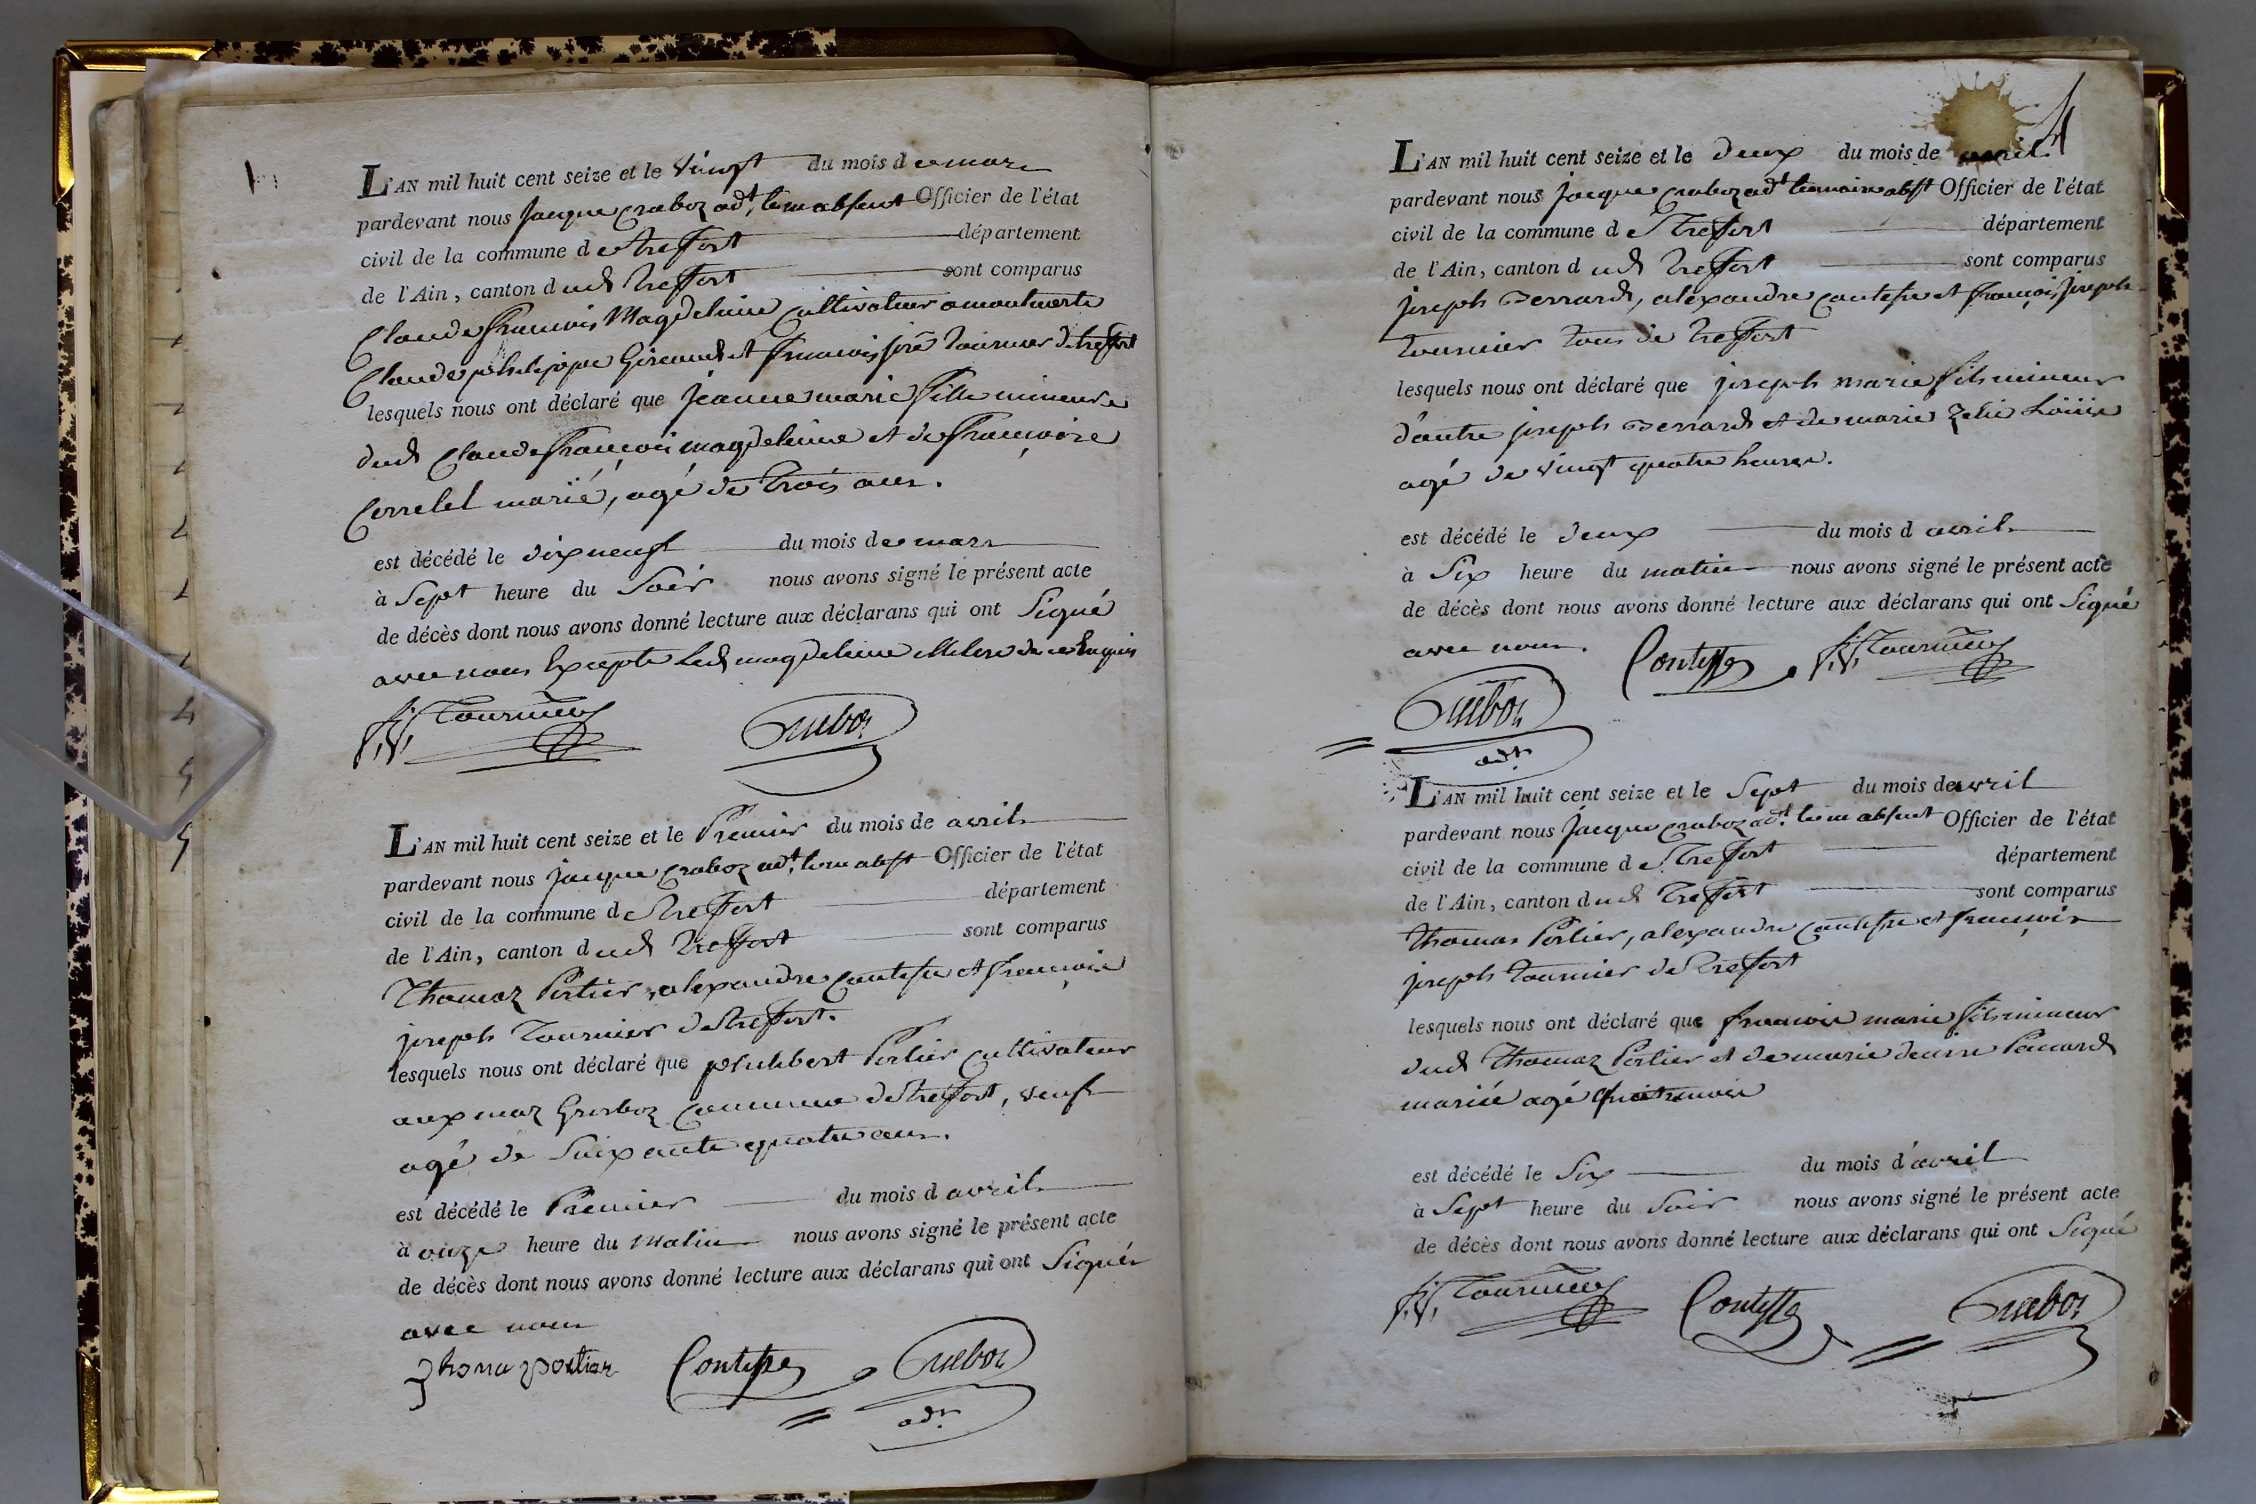 L'AN mil huit cent seize et le vingt du mois de mars
pardevant nous jacque craboz adt. le m absent Officier de l'état
civil de la commune de treffort département
de l'Ain, canton dud treffort sont comparus
Claude françois Magdeleine Cultivateur a montmerle
Claude philippe Giraud et françois jph tournier de treffort
lesquels nous ont déclaré que jeanne marie fille mineure
dud Claude françois magdeleine et de françoise
Corretel marié, agé de trois ans.
est décédé le dix neuf du mois de mars
à Sept heure du Soir nous avons signé le présent acte
de décès dont nous avons donné lecture aux déclarans qui ont Signé
avec nous Excepte Led magdeleine illitere de ce Enquis
f. j. Tournier Craboz
L'AN mil huit cent seize et le Premier du mois de avril
pardevant nous jacque craboz adt. le m abst Officier de l'état
civil de la commune de treffort département
de l'Ain, canton dud treffort sont comparus
Thomaz Portier, alexandre contesse et françois
joseph Tournier de treffort.
lesquels nous ont déclaré que philibert Portier cultivateur
aux maz commune de treffort, veuf
agé de Soixante quatre ans.
est décédé le Premier du mois d avril
à onze heure du Matin nous avons signé le présent acte
de décès dont nous avons donné lecture aux déclarans qui ont Signés
avec nous
Thoma portiar Contesse Craboz
adt.
4
L'AN mil huit cent seize et le deux du mois de avril
pardevant nous jacque craboz adt le maire abst Officier de l'état
civil de la commune de Treffort département
de l'Ain, canton dud treffort sont comparus
joseph, alexandre contesse et françois joseph
tournier tous de treffort
lesquels nous ont déclaré que joseph marie fils mineur
d'autre joseph et de marie Zelie
agé de vingt quatre heures.
est décédé le deux du mois d avril
à Six heure du matin nous avons signé le présent acte
de décès dont nous avons donné lecture aux déclarans qui ont Signé
avec nous. Contesse f. j. Tournier
Craboz
adt.
L'AN mil huit cent seize et le Sept du mois de avril
pardevant nous jacque craboz adt. le m absent Officier de l'état
civil de la commune de Treffort département
de l'Ain, canton dud Treffort sont comparus
Thomas Portier, alexandre contesse et françois
joseph tournier de treffort
lesquels nous ont déclaré que françois marie fils mineur
dud Thomaz Portier et de marie
mariée agé huit mois
est décédé le Six du mois d'avril
à Sept heure du Soir nous avons signé le présent acte
de décès dont nous avons donné lecture aux déclarans qui ont Signé
f. j. Tournier Contesse Craboz